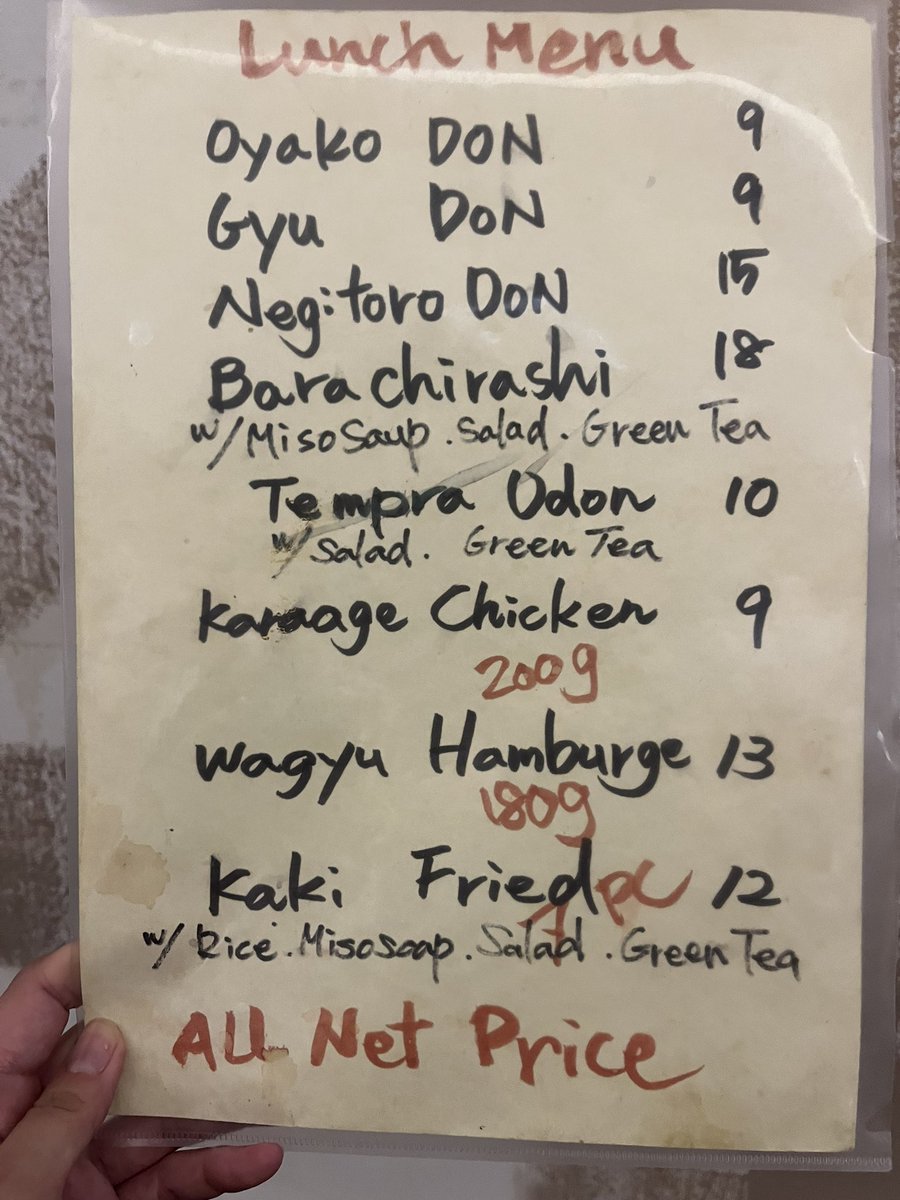 Lunch Menu
Oyako DON 9
Gyu DON 9
Negitoro DON 15
Barachirashi 18
w/MisoSaup.Salad.Green Tea
Tempra Udon 10
w/Salad. Green Tea
Karaage Chicken 9
200g
Wagyu Hamburge 13
180g
Kaki Fried pc 12
w/ Rice.Misosoap.Salad.Green Tea
ALL Net Price